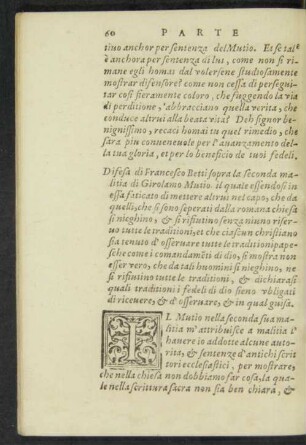 60 PARTE
tino anchor per sentenza del Mutio. Et se tal'
è anchora per sentenza di lui, come non si ri
mane egli homai dal volersene studiosamente
mostrar difensore? come non cessa di persegui-
tar così fieramente coloro, che fuggendo la via
di perditione, s'abbracciano quella verita, che
conduce altrui alla beata vita? Deh signor be-
nignissimo, recaci homai tu quel rimedio, che
sara piu conneneuole per l'auanzamento del-
la tua gloria, et per lo beneficio de tuoi fedeli.
Difesa di Francesco Betti sopra la seconda ma-
litia di Girolamo Mutio. il quale essendosi in
essa faticato di mettere altrui nel capo, che da
quelli, che si sono seperati dalla romana chiesa
si nieghino, & si rifiutino senza niuno riser-
uo tutte le traditioni, et che ciascun christiano
sia tenuto d'osseruare tutte le traditioni pape-
sche come i comandamēti di dio, si mostra non
esser vero, che da tali huomini si nieghino, ne
si rifiutino tutte le traditioni, & dichiarasi
quali traditioni i fedeli di dio sieno vbligati
di riceuere, & d'osseruare, & in qual guisa.
IL Mutio nella seconda sua ma
litia m'attribuisce a malitia l'
hauere io addotte alcune auto
rita, & sentenze d'antichi scrit
tori ecclesiastici, per mostrare,
che nella chiesa non dobbiamo far cosa, la qua-
le nella scrittura sacra non sia ben chiara, &